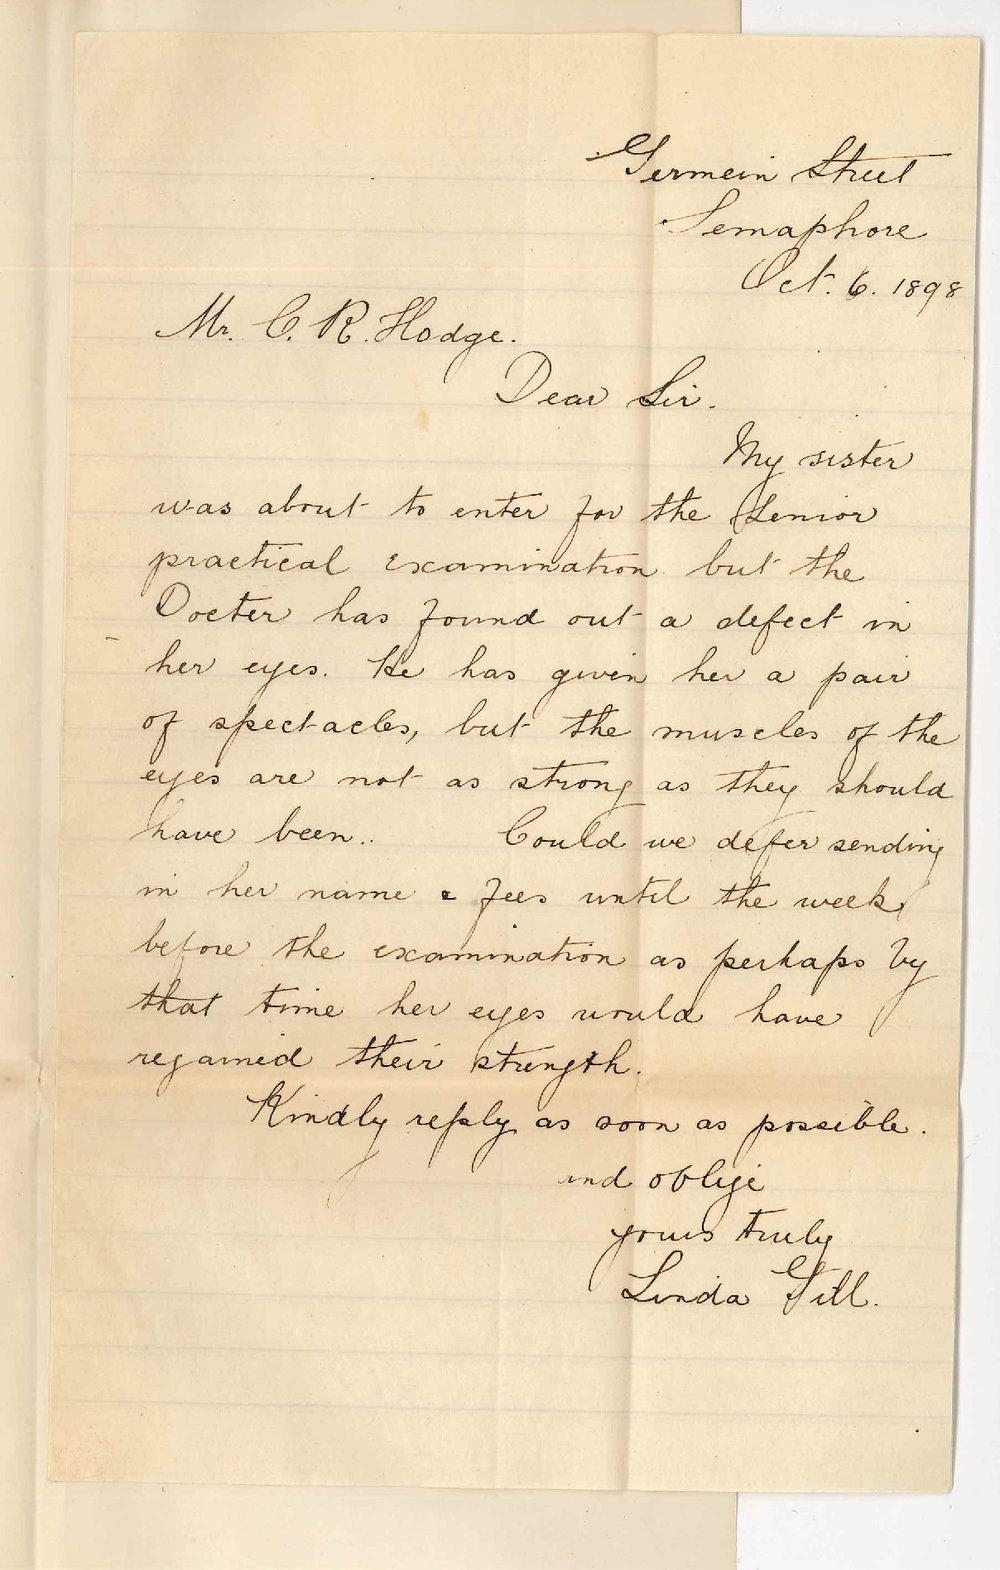 Germein Street
Semaphore
Oct. 6. 1898
Mr. C. R. Hodge.
Dear Sir.
My sister
was about to enter for the Senior
practical examination but the
Docter has found out a defect in
her eyes. He has given her a pair
of spectacles, but the muscles of the
eyes are not as strong as they should
have been.. Could we defer sending
in her name & fees until the week
before the examination as perhaps by
that time her eyes would have
regained their strength.
Kindly reply as soon as possible.
and oblige
yours truly
Linda Gill.